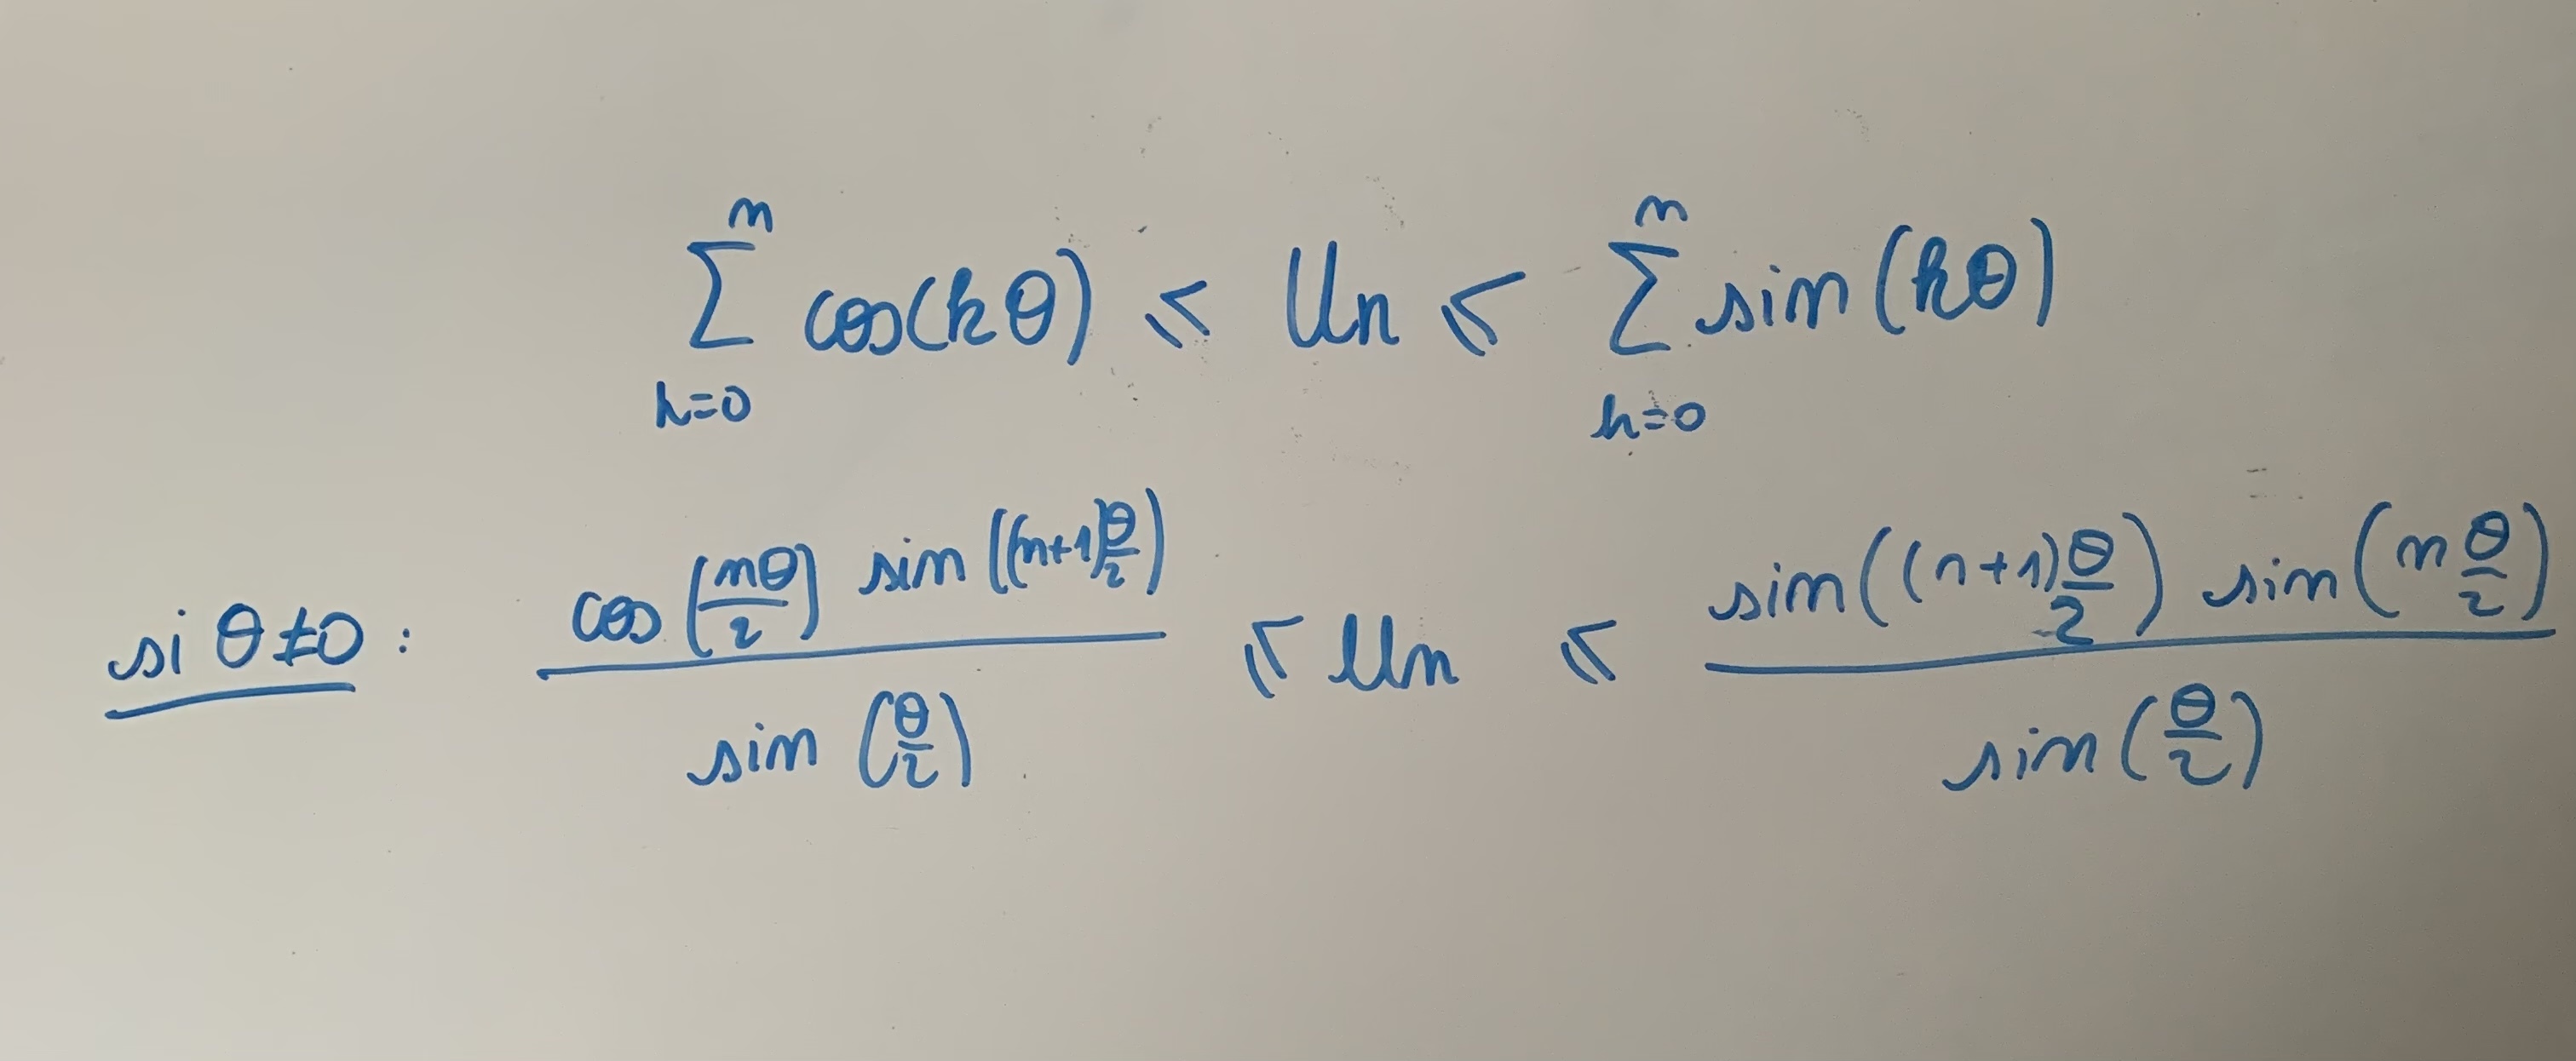 \sum_{k=0}^{n} cos(kθ) ⩽ Un ⩽ \sum_{k=0}^{n} sin(kθ)
si θ≠0 : \frac{cos(\frac{nθ}{2}) sin((n+1)\frac{θ}{2})}{sin(\frac{θ}{2})} ⩽ Un ⩽ \frac{sin((n+1)\frac{θ}{2}) sin(n\frac{θ}{2})}{sin(\frac{θ}{2})}